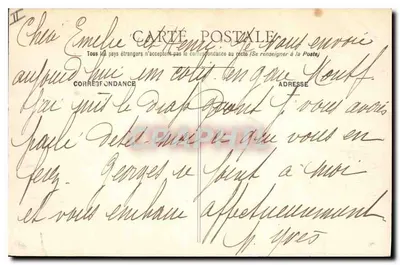 II
CARTE POSTALE
Tous les pays étrangers n'acceptent pas la correspondance au recto (Se renseigner à la Poste)
Cher Emilie et Henri. Je vous envoie
aujourd'hui un colis en gare
CORRESPONDANCE
ADRESSE
J'ai pris le drap Dont j'vous avais
parlé dites moi ce que vous en
ferez. Georges se joint à moi
et vous embrasse affectueusement
M. Yves